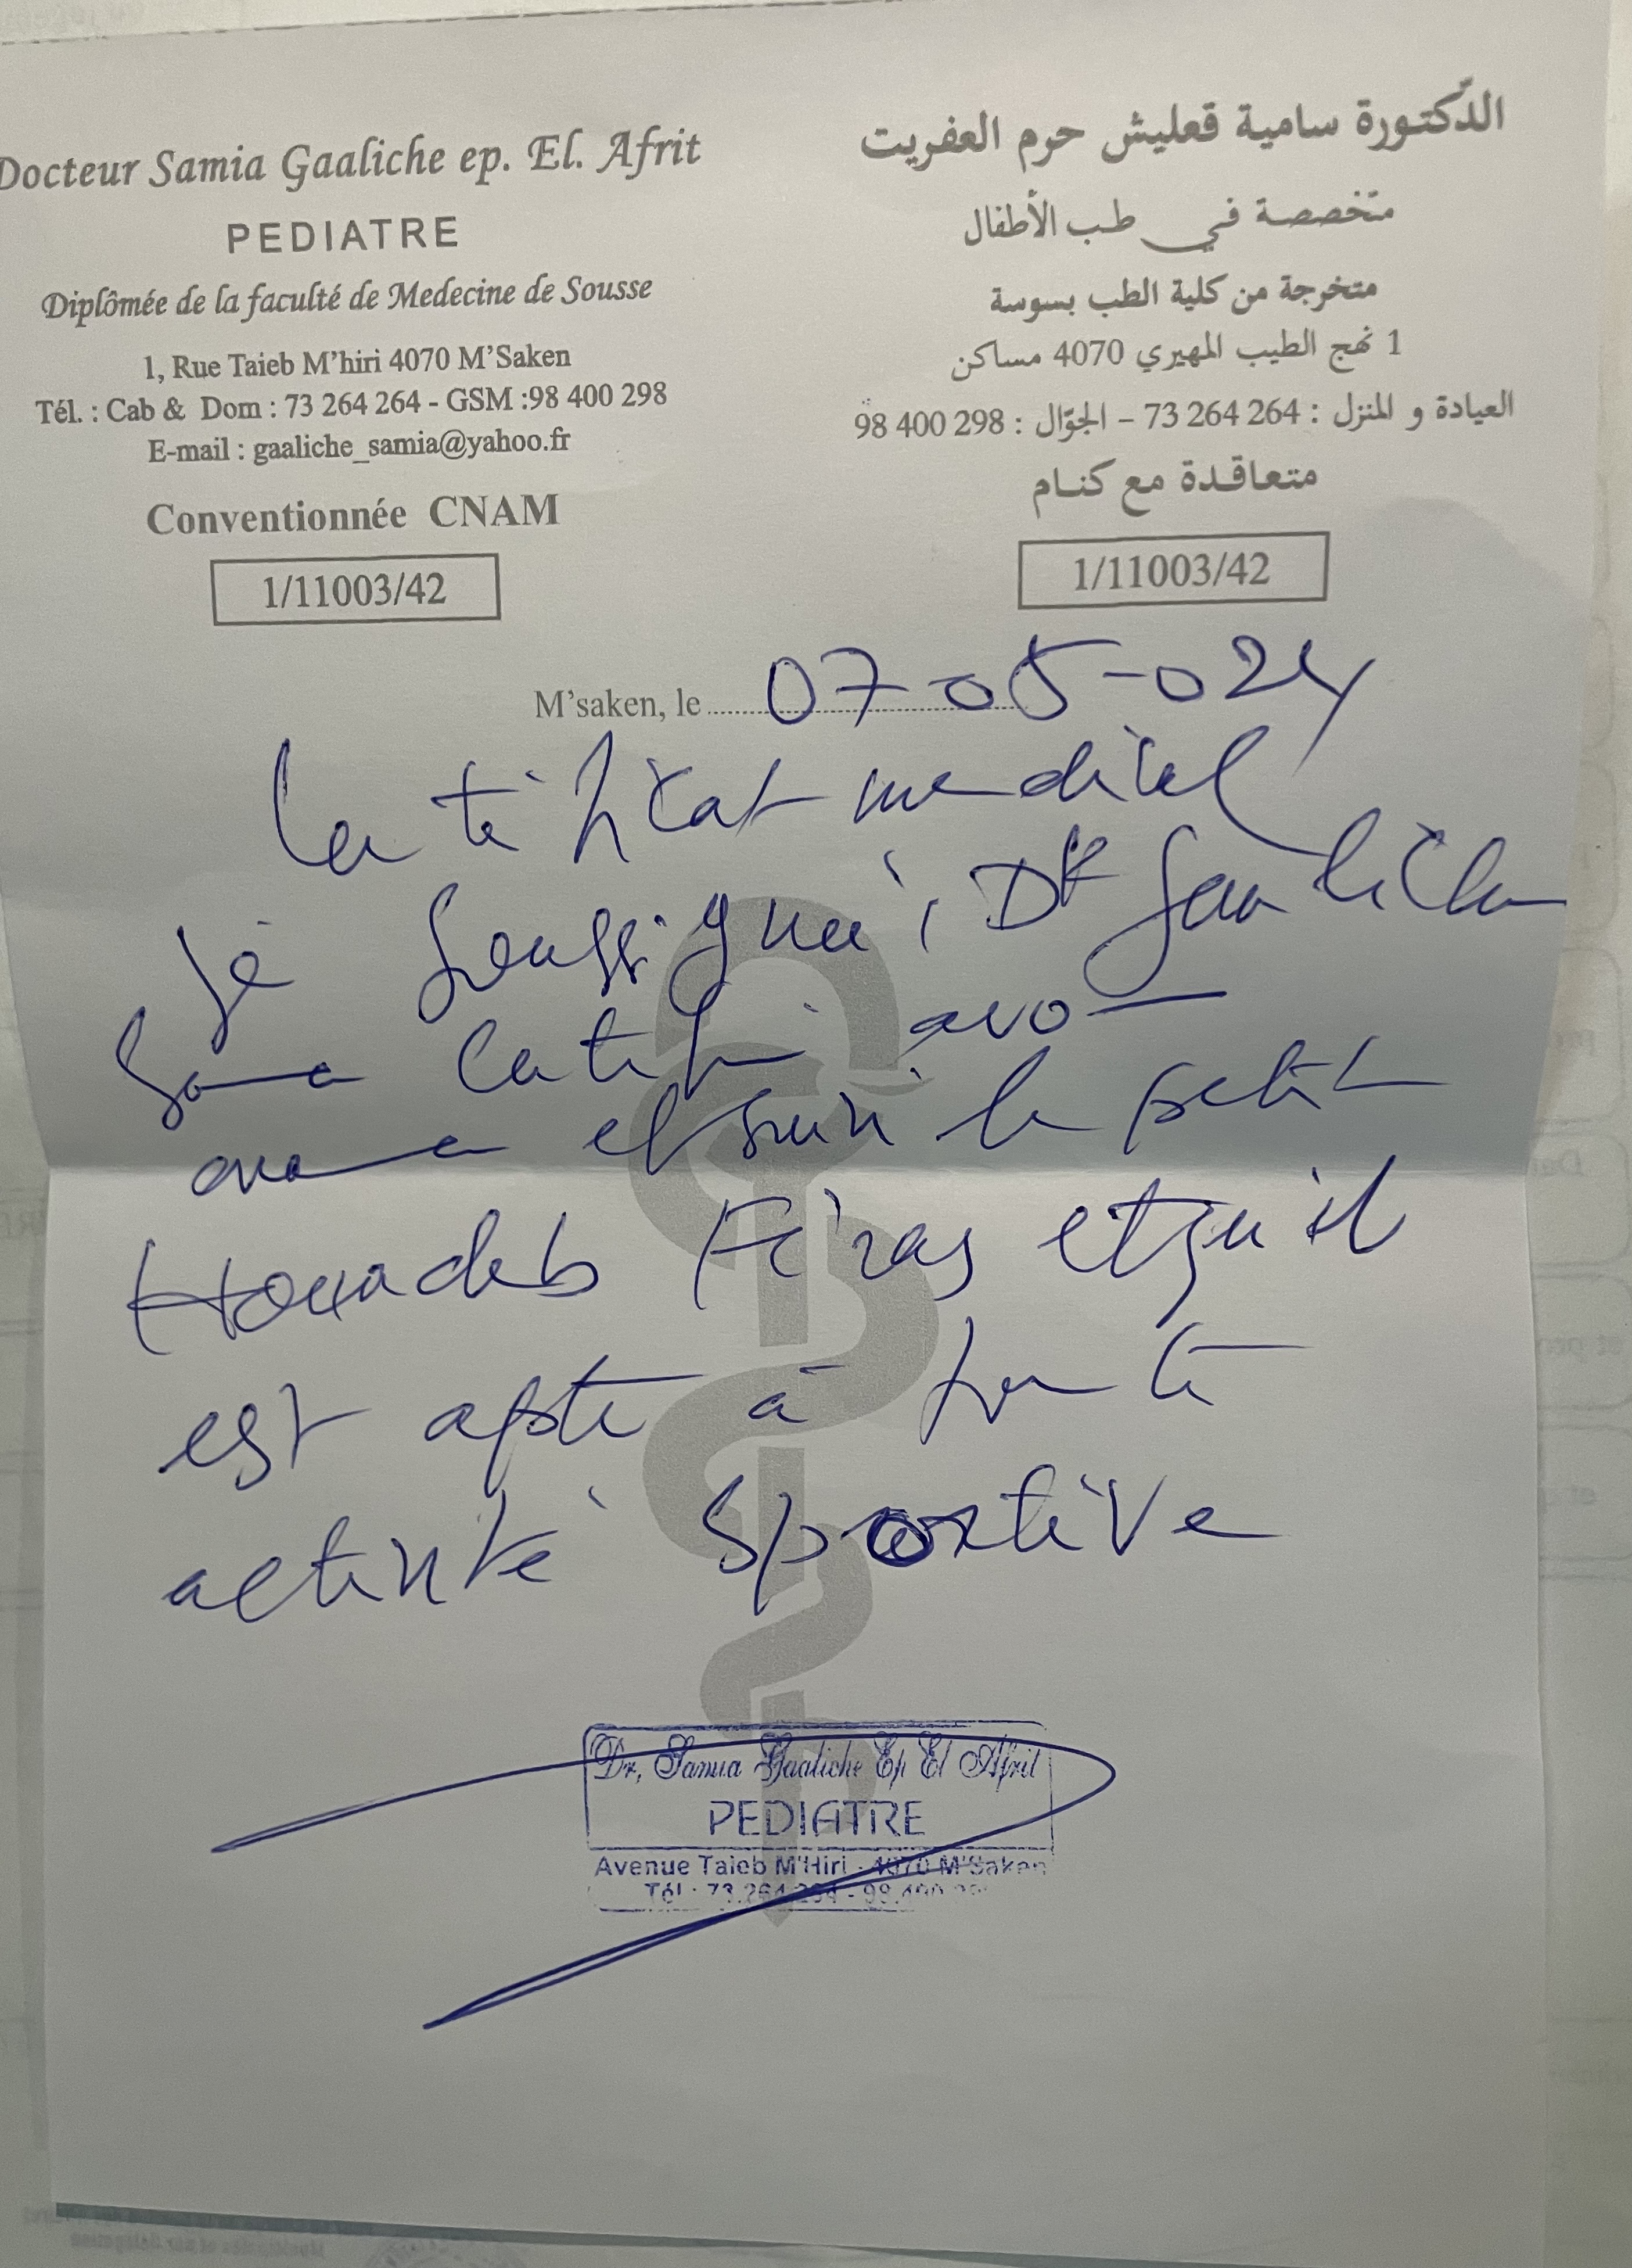 Docteur Samia Gaaliche ep. El. Afrit
PEDIATRE
Diplômée de la faculté de Medecine de Sousse
1, Rue Taieb M'hiri 4070 M'Saken
Tél. : Cab & Dom : 73 264 264 - GSM :98 400 298
E-mail : gaaliche_samia@yahoo.fr
Conventionnée CNAM
1/11003/42
الدّكتورة سامية قعليش حرم العفريت
متخصصة في طب الأطفال
متخرجة من كلية الطب بسوسة
1 نهج الطيب المهيري 4070 مساكن
العيادة و المنزل : 264 264 73 – الجوّال : 298 400 98
متعاقدة مع كنام
1/11003/42
M'saken, le 07-05-024
Certificat medical
Je soussigné, Dr Gaaliche
Samia certifie avoir
examiné et suivi le petit
Houadeb Firas et qu'il
est apte à toute
activité sportive
Dr, Samia Gaaliche Ep El Afrit
PEDIATRE
Avenue Taieb M'Hiri - 4070 M'Saken
Tél : 73.264.264 - 98.400